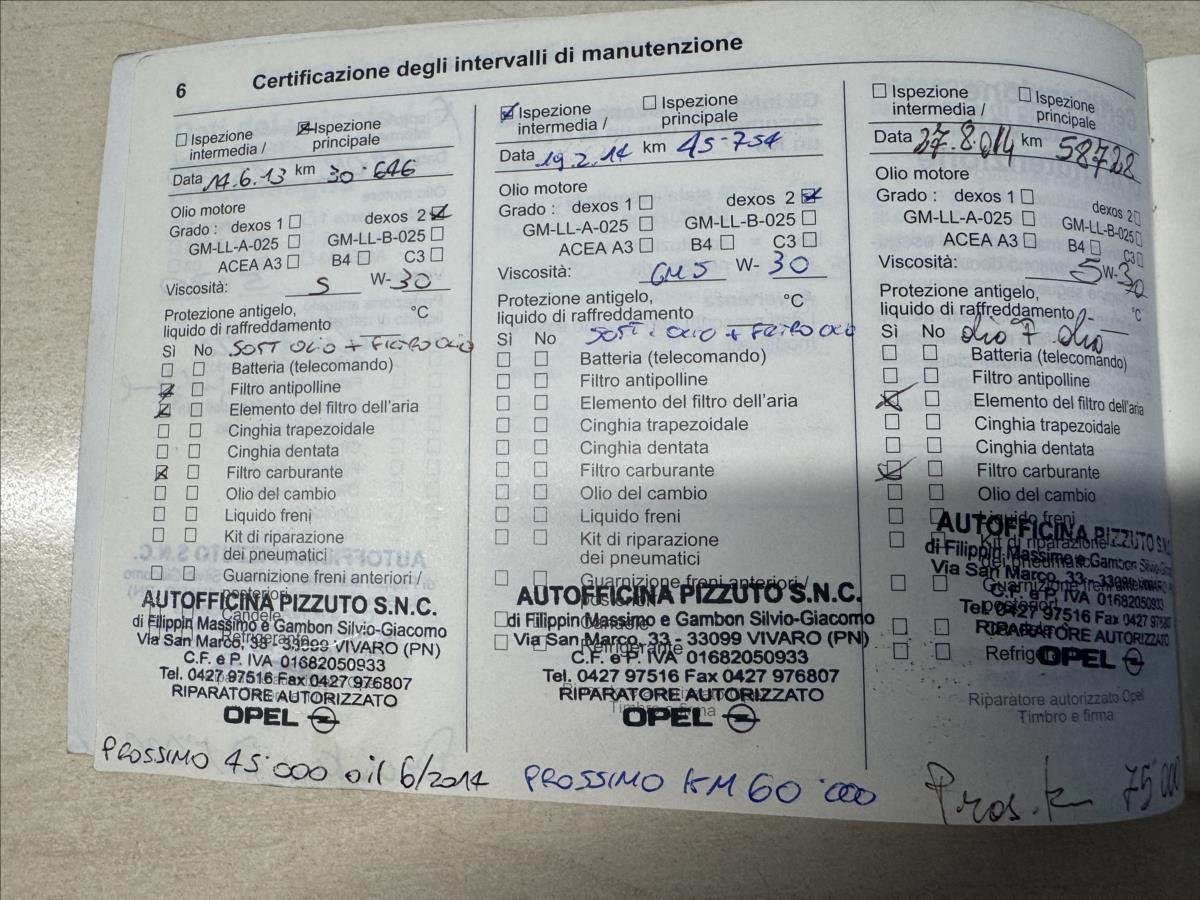 6
Certificazione degli intervalli di manutenzione
Ispezione intermedia /
Ispezione principale
Data 14.6.13 km 30.646
Olio motore
Grado : dexos 1
dexos 2
GM-LL-A-025
GM-LL-B-025
ACEA A3
B4
C3
Viscosità: 5 W- 30
Protezione antigelo,
liquido di raffreddamento
°C
Sì No SOST OLIO + FILTRO OLIO
Batteria (telecomando)
Filtro antipolline
Elemento del filtro dell'aria
Cinghia trapezoidale
Cinghia dentata
Filtro carburante
Olio del cambio
Liquido freni
Kit di riparazione
dei pneumatici
Guarnizione freni anteriori /
posteriori
Candele
Refrigerante
AUTOFFICINA PIZZUTO S.N.C.
di Filippin Massimo e Gambon Silvio-Giacomo
Via San Marco, 33 - 33099 VIVARO (PN)
C.F. e P. IVA 01682050933
Tel. 0427 97516 Fax 0427 976807
RIPARATORE AUTORIZZATO
OPEL
PROSSIMO 45.000 o il 6/2014
Ispezione
intermedia /
Ispezione
principale
Data 19.2.14 km 45.754
Olio motore
Grado : dexos 1
dexos 2
GM-LL-A-025
GM-LL-B-025
ACEA A3
B4
C3
Viscosità: GM 5 W- 30
Protezione antigelo,
liquido di raffreddamento
°C
Sì No SOST. OLIO + FILTRO OLIO
Batteria (telecomando)
Filtro antipolline
Elemento del filtro dell'aria
Cinghia trapezoidale
Cinghia dentata
Filtro carburante
Olio del cambio
Liquido freni
Kit di riparazione
dei pneumatici
Guarnizione freni anteriori /
posteriori
Candele
Refrigerante
AUTOFFICINA PIZZUTO S.N.C.
di Filippin Massimo e Gambon Silvio-Giacomo
Via San Marco, 33 - 33099 VIVARO (PN)
C.F. e P. IVA 01682050933
Tel. 0427 97516 Fax 0427 976807
RIPARATORE AUTORIZZATO
OPEL
Timbro e firma
PROSSIMO KM 60.000
Ispezione
intermedia /
Ispezione
principale
Data 27.8.014 km 58728
Olio motore
Grado : dexos 1
dexos 2
GM-LL-A-025
GM-LL-B-025
ACEA A3
B4
C3
Viscosità: 5 W- 30
Protezione antigelo,
liquido di raffreddamento
°C
Sì No olio F. olio
Batteria (telecomando)
Filtro antipolline
Elemento del filtro dell'aria
Cinghia trapezoidale
Cinghia dentata
Filtro carburante
Olio del cambio
Liquido freni
Kit di riparazione
dei pneumatici
Guarnizione freni anteriori
posteriori
Candele
Refrig
AUTOFFICINA PIZZUTO S.N.
di Filippin Massimo e Gambon Silvio-Giac
Via San Marco, 33 - 33099 VIVARO
C.F. e P. IVA 01682050933
Tel. 0427 97516 Fax 0427 976807
RIPARATORE AUTORIZZATO
OPEL
Riparatore autorizzato Opel
Timbro e firma
Pros. km 75000